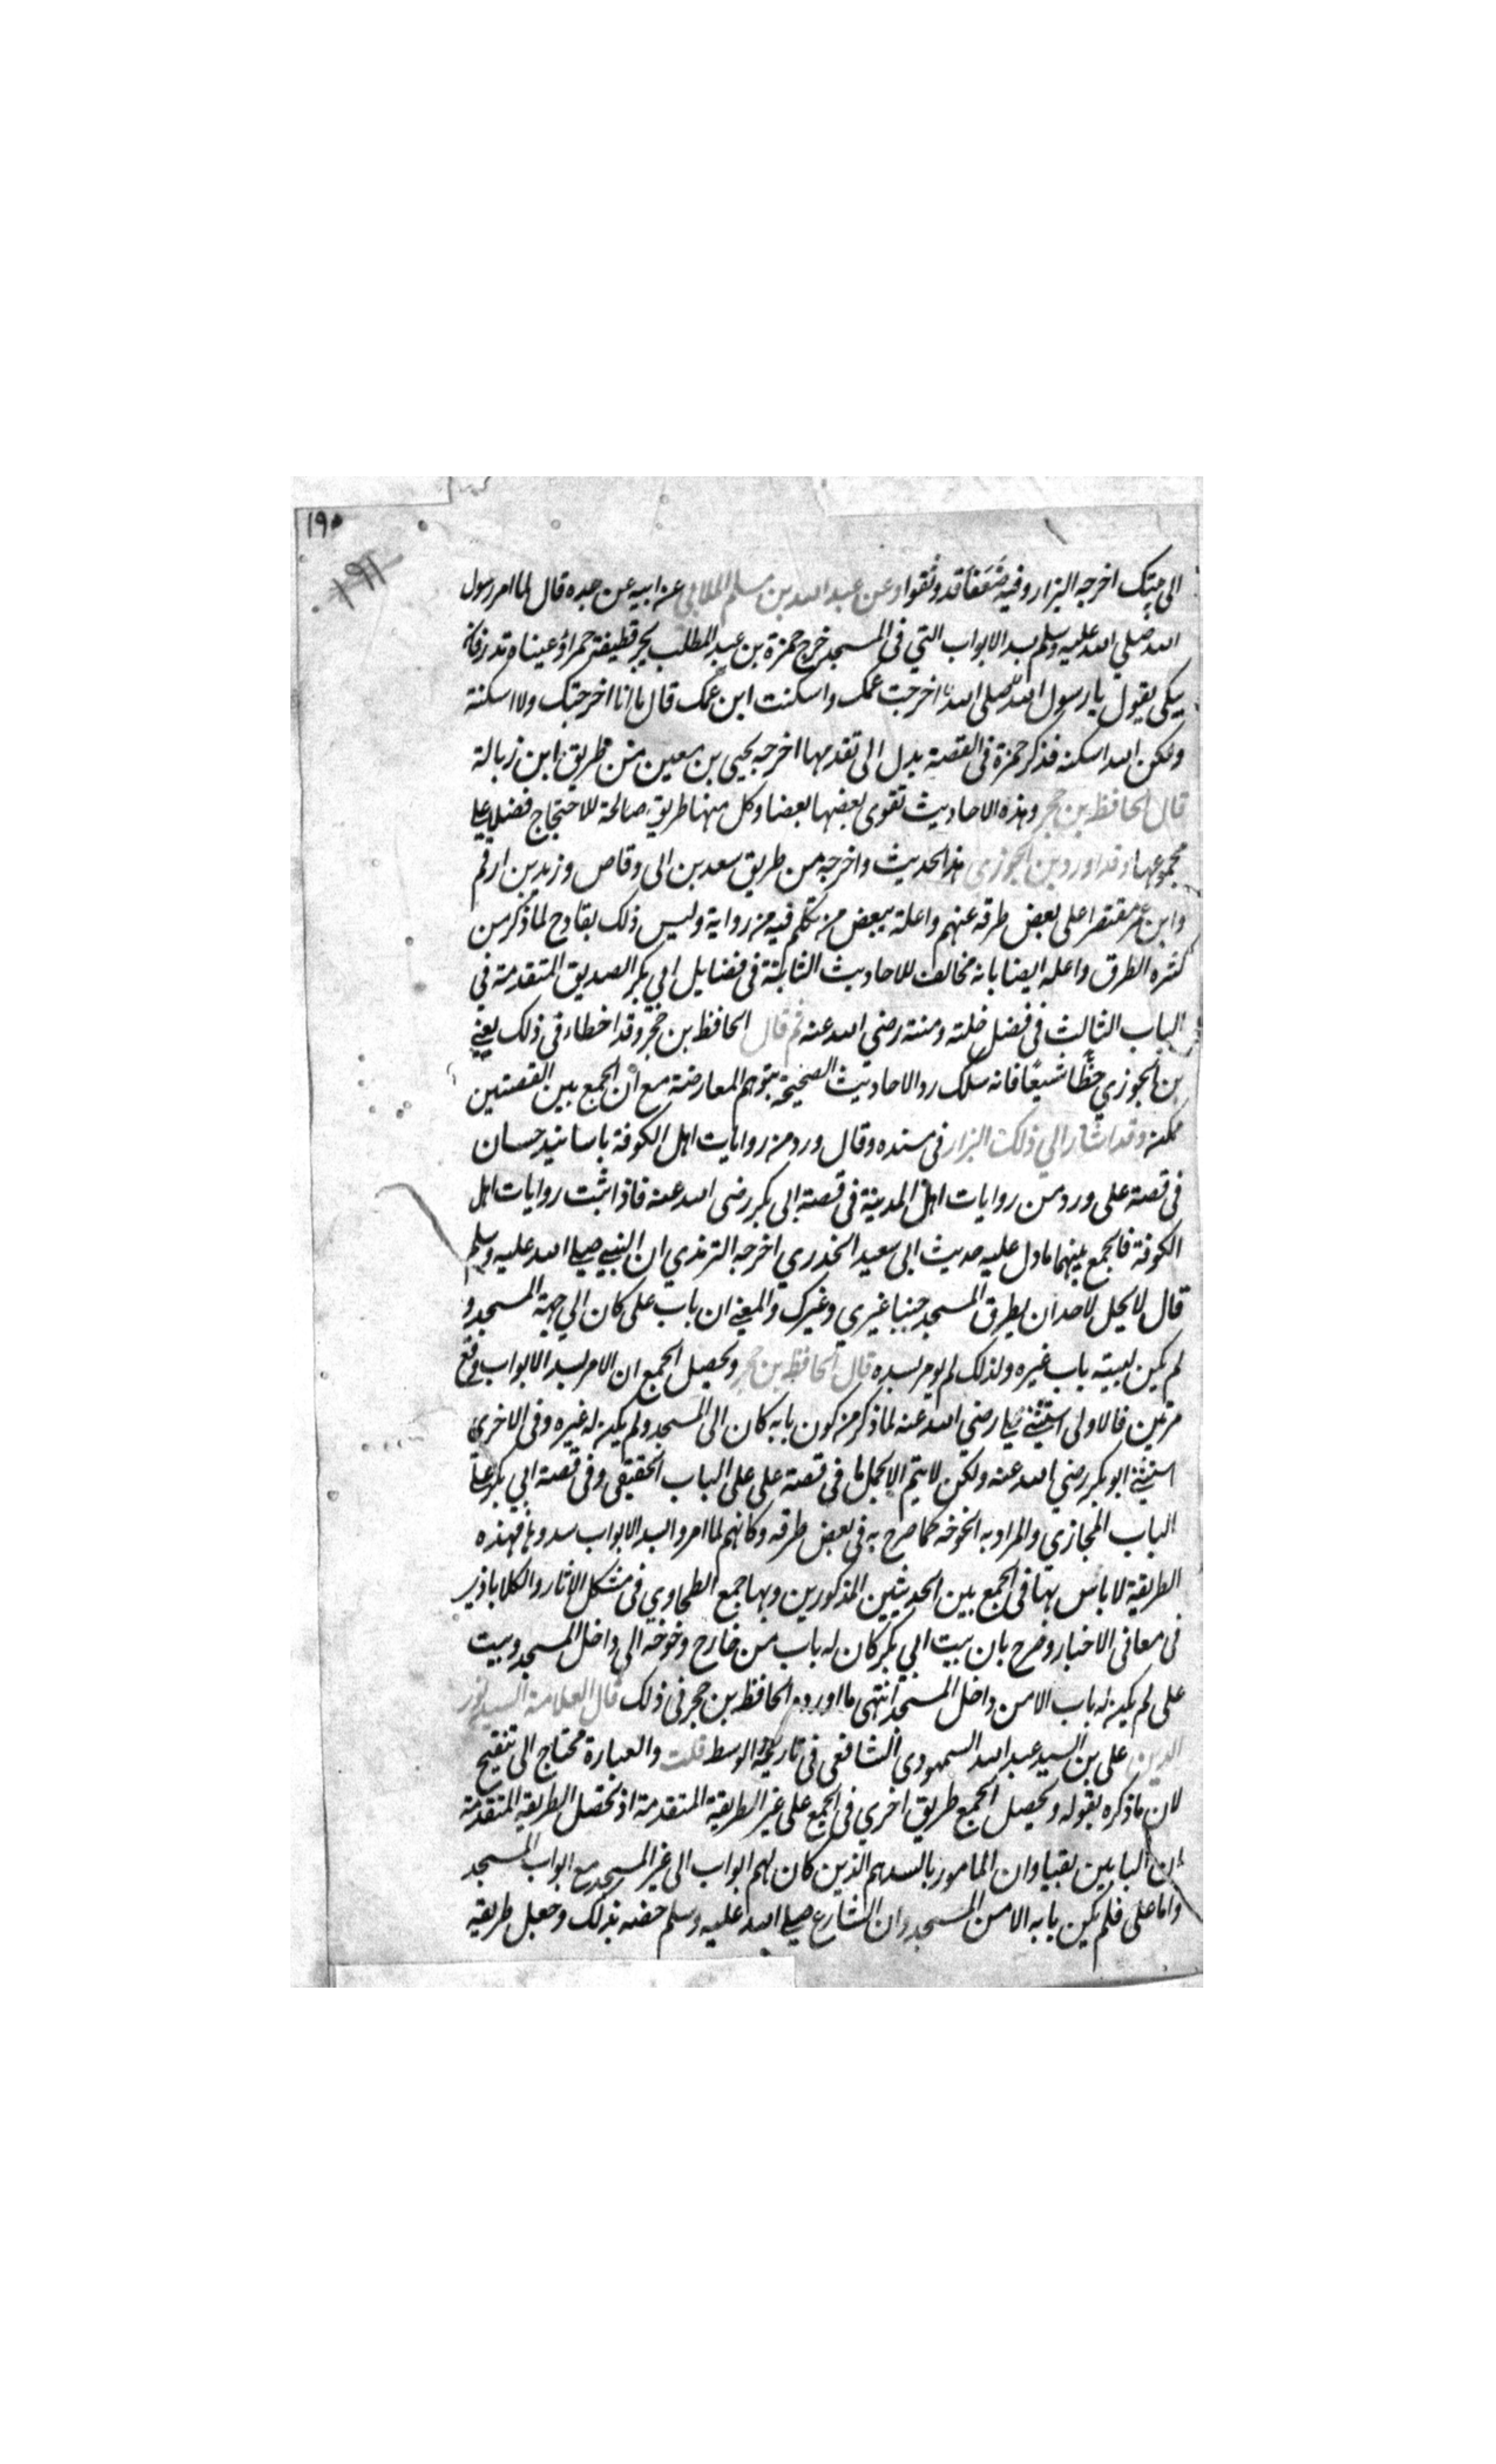 ١٩٠
١٩١
الى بيتك اخرجه البزار وفيه ضعفا قد وثقوا وعن عبد الله بن مسلم الملايي عن ابيه عن جده قال لما امر رسول
الله صلي الله عليه وسلم بسد الابواب التي فى المسجد خرج حمزة بن عبد المطلب يجر قطيفة حمراء وعيناه تدرفان
يبكى يقول يا رسول الله صلى الله اخرجت عمك واسكنت ابن عمك قال ما انا اخرجتك ولا اسكنته
ولكن الله اسكنه فذكر حمزة فى القصة يدل الى تقدمها اخرجه يحيى بن معين من طريق ابن زبالة
قال الحافظ بن حجر وهذه الاحاديث تقوى بعضها بعضا وكل منها طريق صالحة للاحتجاج فضلا على
مجموعها وقد اورد بن الجوزى هذا الحديث واخرجه من طريق سعد بن ابى وقاص وزيد بن ارقم
وابن عمر مقتصرا على بعض طرقه عنهم واعلة ببعض من تكلم فيه من رواية وليس ذلك بقادح لما ذكر من
كثره الطرق واعله ايضا بانه مخالف للاحاديث الثابتة فى فضايل ابي بكر الصديق المتقدمة في
الباب الثالث فى فضل خلته ومنته رضي الله عنه ثم قال الحافظ بن حجر وقد اخطاء فى ذلك يعني
بن الجوزي خطأ شنيعًا فانه سلك رد الاحاديث الصحيحة بتوهم المعارضة مع ان الجمع بين القصتين
ممكن وقد اشار الي ذلك البزار فى مسنده وقال ورد من روايات اهل الكوفة باسانيد حسان
فى قصة على ورد من روايات اهل المدينة فى قصة ابى بكر رضى الله عنه فاذا ثبت روايات اهل
الكوفة فالجمع بينهما ما دل عليه حديث ابى سعيد الخدري اخرجه الترمذي ان النبي صلى الله عليه وسلم
قال لا يحل لاحد ان يطرق المسجد جنبا غيري وغيرك والمعني ان باب على كان الي جهة المسجد و
لم يكن لبيته باب غيره ولذلك لم يومر بسده قال الحافظ بن حجر ومحصل الجمع ان الامر بسد الابواب وقع
مرتين فالاولى استثني عليا رضي الله عنه لما ذكر من كون بابه كان الى المسجد ولم يكن له غيره وفى الاخرى
استثني ابو بكر رضي الله عنه ولكن لا يتم الا بحمل ما فى قصة على على الباب الحقيقى وفى قصة ابي بكر على
الباب المجازى والمراد به الخوخه كما صرح به فى بعض طرقه وكانهم لما امروا بسد الابواب سدوها فهذه
الطريقة لا باس بها فى الجمع بين الحديثين المذكورين وبها جمع الطحاوي فى مشكل الاثار والكلاباذي
فى معانى الاخبار وصرح بان بيت ابي بكر كان له باب من خارج وخوخة الى داخل المسجد وبيت
على لم يكن له باب الا من داخل المسجد انتهى ما اورده الحافظ بن حجر فى ذلك قال العلامة السيد نور
الدين على بن السيد عبد الله السمهودى الشافعى فى تاريخه الوسط قلت والعبارة محتاج الى تنقيح
لان ما ذكره بقوله ومحصل الجمع طريق اخري فى الجمع على غير الطريقة المتقدمة اذ محصل الطريقة المتقدمة
ان البابين بقيا وان المامور بالسد هم الذين كان لهم ابواب الى غير المسجد مع ابواب المسجد
واما على فلم يكن بابه الا من المسجد وان الشارع صلى الله عليه وسلم خصه بذلك وجعل طريقه